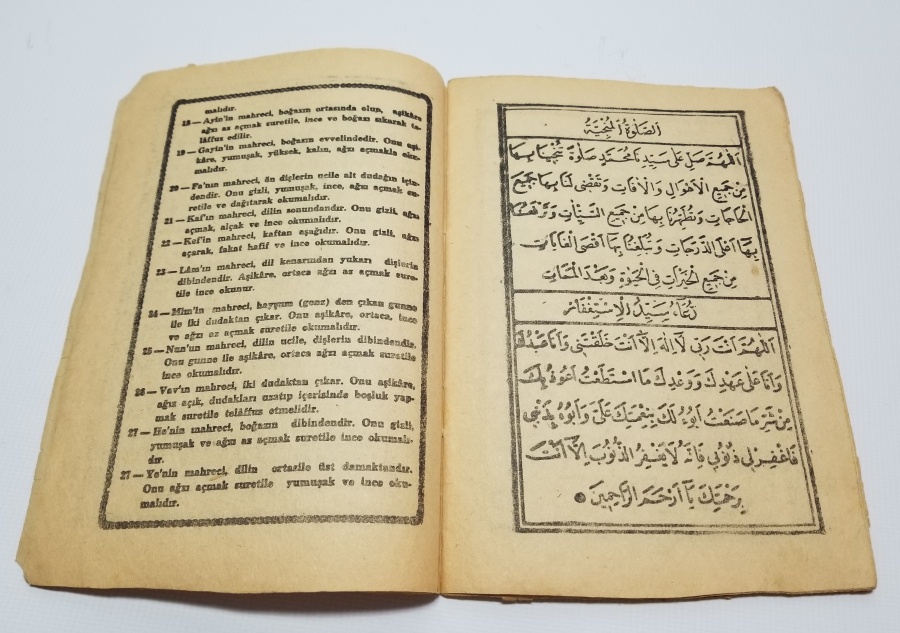 malıdır.
18 — Ayin'in mahreci, boğazın ortasında olup, aşikâre
ağzı az açmak suretile, ince ve boğazı sıkarak te-
lâffuz edilir.
19 — Gayin'in mahreci, boğazın evvelindedir. Onu aşi-
kâre, yumuşak, yüksek, kalın, ağzı açmakla oku-
malıdır.
20 — Fa'nın mahreci, ön dişlerin ucile alt dudağın için-
dendir. Onu gizli, yumuşak, ince, ağzı açmak su-
retile ve dağıtarak okumalıdır.
21 — Kaf'ın mahreci, dilin sonundandır. Onu gizli, ağzı
açmak, alçak ve ince okumalıdır.
22 — Kef'in mahreci, kaftan aşağıdır. Onu gizli, ağzı
açarak, fakat hafif ve ince okumalıdır.
23 — Lâm'ın mahreci, dil kenarından yukarı dişlerin
dibindendir. Aşikâre, ortaca ağzı az açmak sure-
tile ince okunur.
24 — Mim'in mahreci, hayşum (genz) den çıkan gunne
ile iki dudaktan çıkar. Onu aşikâre, ortaca, ince
ve ağzı az açmak suretile okumalıdır.
25 — Nun'un mahreci, dilin ucile, dişlerin dibindendir.
Onu gunne ile aşikâre, ortaca ağzı açmak suretile
ince okumalıdır.
26 — Vav'ın mahreci, iki dudaktan çıkar. Onu aşikâre,
ağzı açık, dudakları uzatıp içerisinde boşluk yap-
mak suretile telâffuz etmelidir.
27 — He'nin mahreci, boğazın dibindendir. Onu gizli,
yumuşak ve ağzı az açmak suretile ince okumalı-
dır.
27 — Ye'nin mahreci, dilin ortasile üst damaktandır.
Onu ağzı açmak suretile yumuşak ve ince oku-
malıdır.
اَلصَّلَوةُ الْمُنْجِيَةُ
اَللّٰهُمَّ صَلِّ عَلَى سَيِّدِنَا مُحَمَّدٍ صَلَوةً تُنْجِينَا بِهَا
مِنْ جَمِيعِ الْاَهْوَالِ وَالْاٰفَاتِ وَتَقْضِى لَنَا بِهَا جَمِيعَ
الْحَاجَاتِ وَتُطَهِّرُنَا بِهَا مِنْ جَمِيعِ السَّيِّئَاتِ وَتَرْفَعُنَا
بِهَا اَعْلَى الدَّرَجَاتِ وَتُبَلِّغُنَا بِهَا اَقْصَى الْغَايَاتِ
مِنْ جَمِيعِ الْخَيْرَاتِ فِى الْحَيٰوةِ وَبَعْدَ الْمَمَاتِ
دُعَاءُ سَيِّدُ الْاِسْتِغْفَارْ
اَللّٰهُمَّ اَنْتَ رَبِّى لَا اِلٰهَ اِلَّا اَنْتَ خَلَقْتَنِى وَاَنَا عَبْدُكَ
وَاَنَا عَلَى عَهْدِكَ وَوَعْدِكَ مَا اسْتَطَعْتُ اَعُوذُ بِكَ
مِنْ شَرِّ مَا صَنَعْتُ اَبُوءُ لَكَ بِنِعْمَتِكَ عَلَىَّ وَاَبُوءُ بِذَنْبِى
فَاغْفِرْ لِى ذُنُوبِى فَاِنَّهُ لَا يَغْفِرُ الذُّنُوبَ اِلَّا اَنْتَ
بِرَحْمَتِكَ يَا اَرْحَمَ الرَّاحِمِينَ